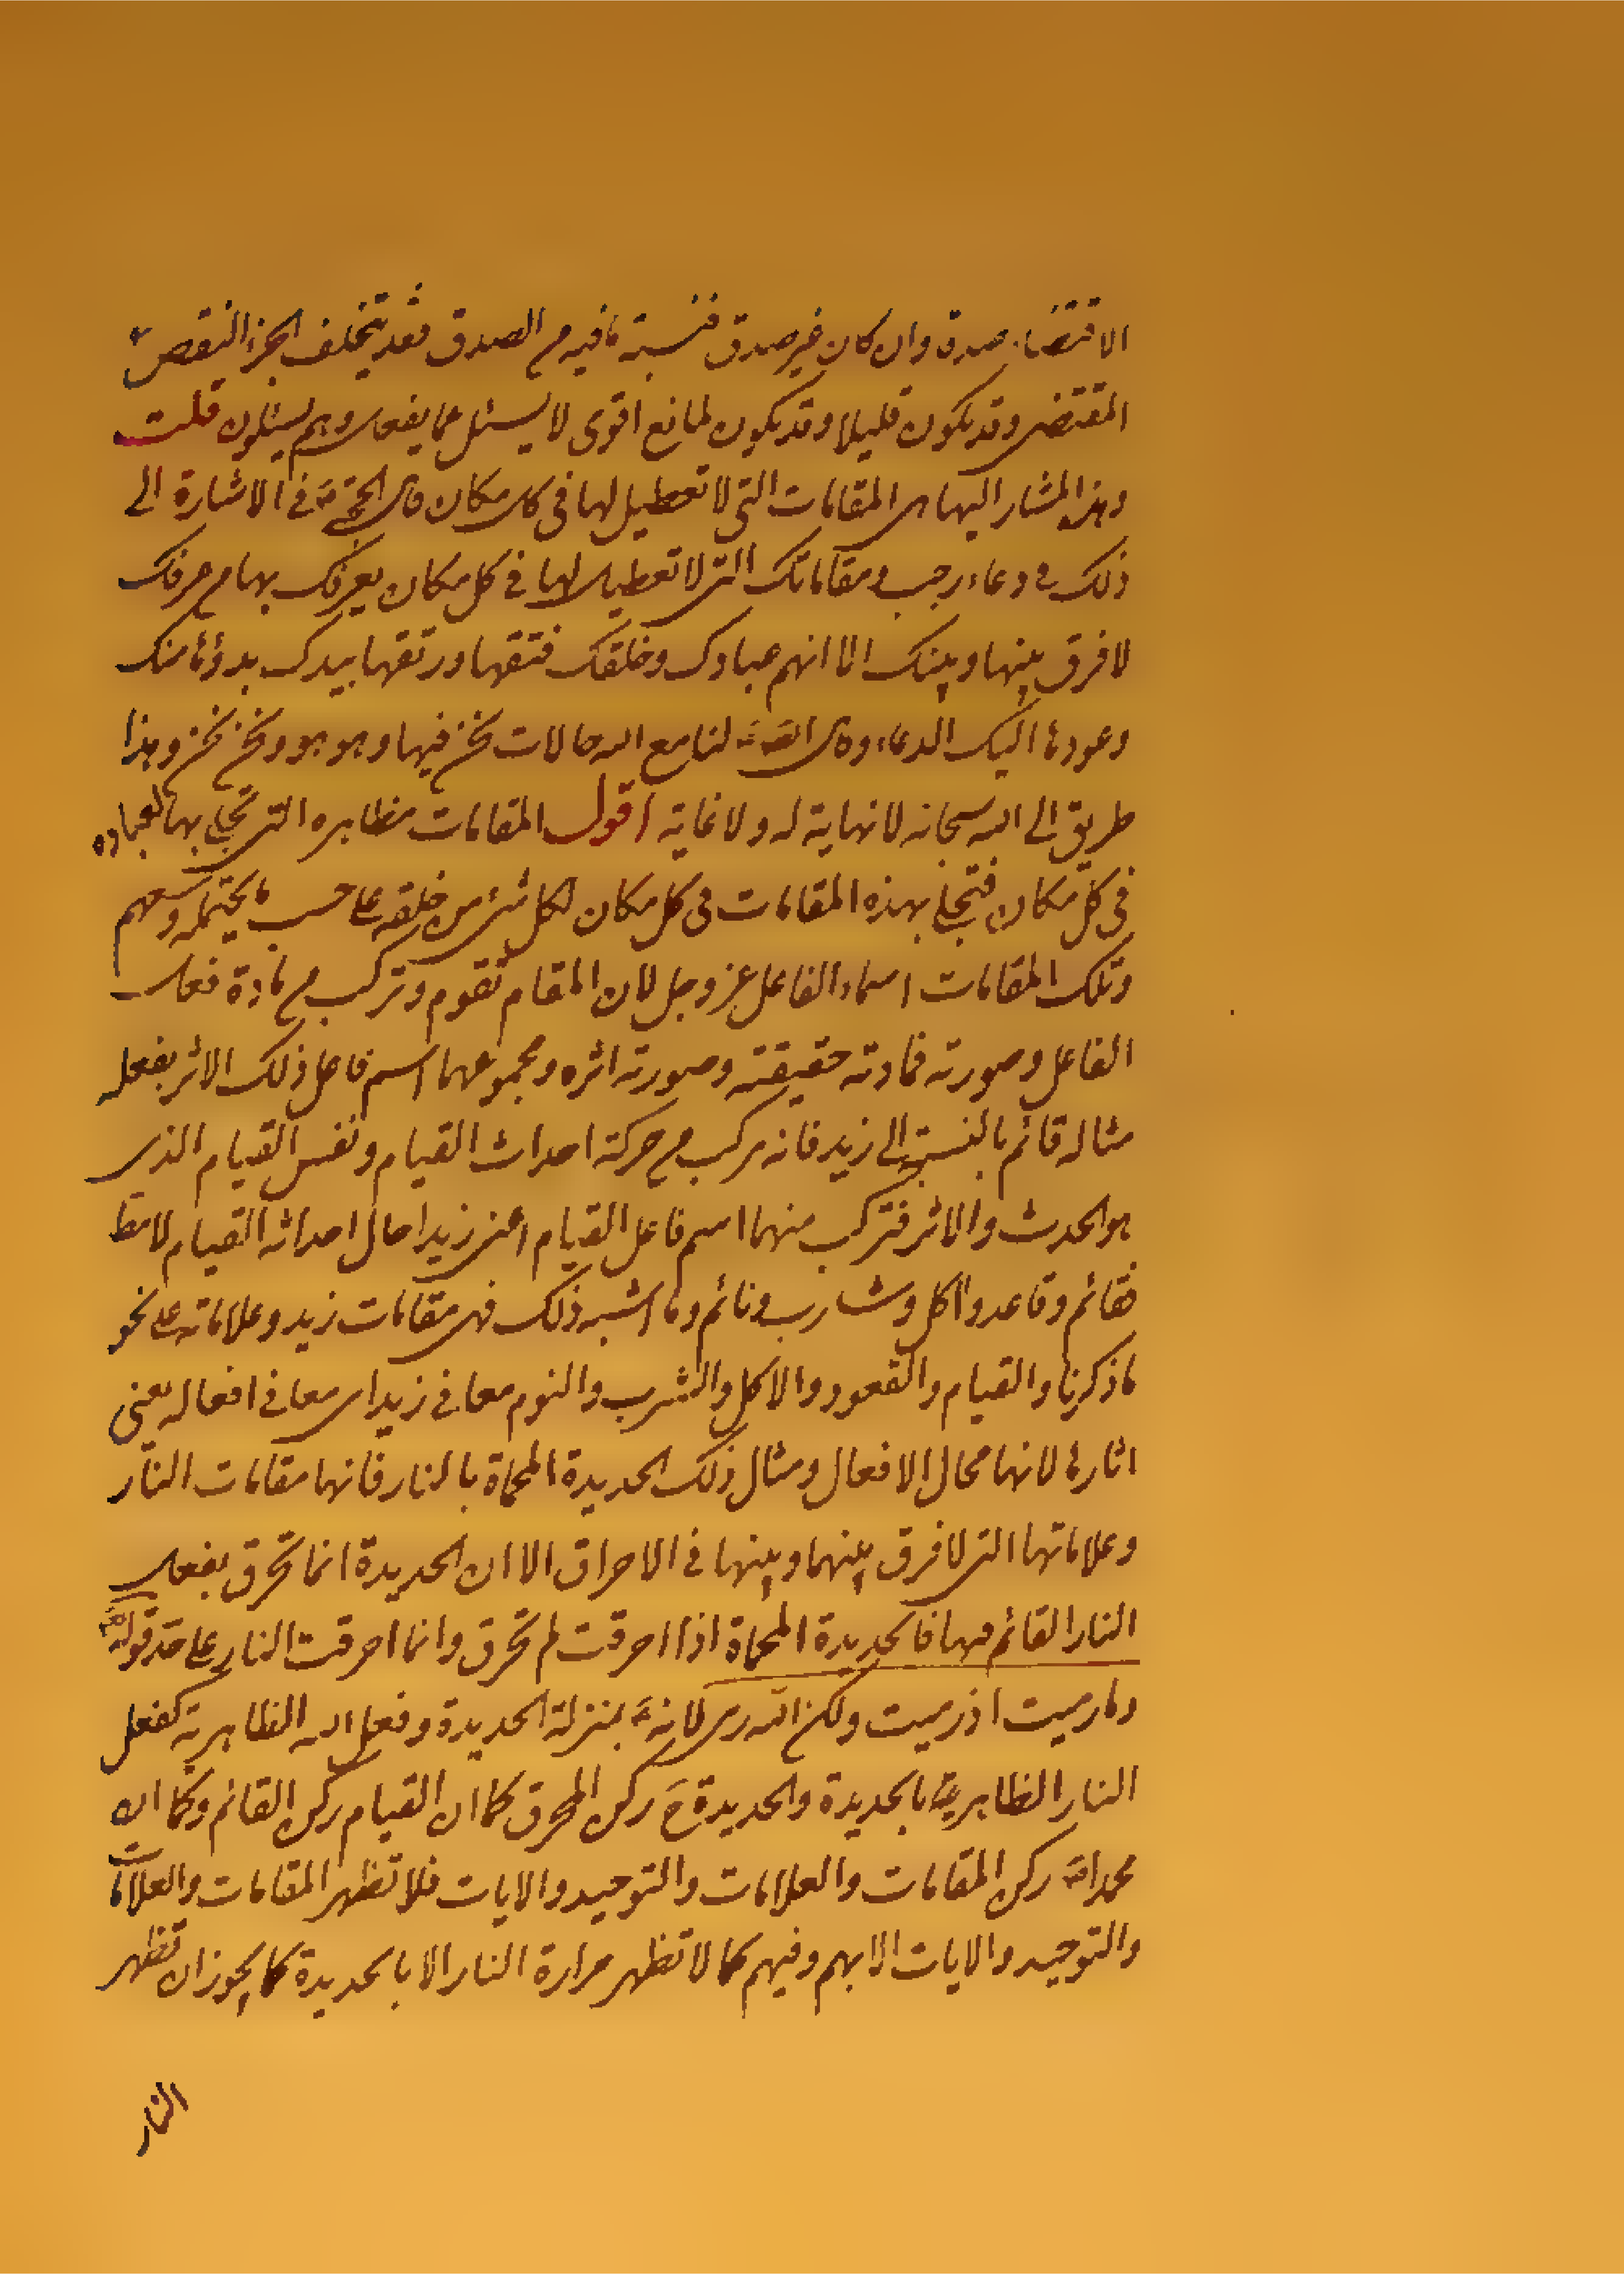 الاقتضاء صدق وان كان غير صدق فنسبة ما فيه من الصدق فقد يتخلف الجزء النقص
المقتضى وقد يكون قليلا وقد يكون لمانع اقوى لا يسئل عما يفعل وهم يسئلون قلت
وهذا المشار اليها هى المقامات التى لا تعطيل لها فى كل مكان قال الحجة ع فى الاشارة الى
ذلك فى دعاء رجب ومقاماتك التى لا تعطيل لها فى كل مكان يعرفك بها من عرفك
لا فرق بينها وبينك الا انهم عبادك وخلقك فتقها ورتقها بيدك بدؤها منك
وعودها اليك الدعاء وقال الص ع لنا مع الله حالات نحن فيها هو وهو نحن وهذا
طريق الى الله سبحانه لا نهاية له ولا غاية اقول المقامات مظاهره التى تجلى بها لعباده
فى كل مكان فتجلى بهذه المقامات فى كل مكان لكل شئ من خلقه على حسب ما يحتمله وسعهم
وتلك المقامات اسماء الفاعل عز وجل لان المقام تقوم وتركب من مادة فعل
الفاعل وصورته فمادته حقيقته وصورته اثره ومجموعهما اسم فاعل ذلك الاثر بفعله
مثاله قائم بالنسبة الى زيد فانه مركب من حركة احداث القيام ونفس القيام الذى
هو الحدث والاثر فتركب منهما اسم فاعل القيام اعنى زيدا حال احداثه القيام لا مط
فقائم وقاعد واكل وشارب ونائم وما اشبه ذلك فهى مقامات زيد وعلاماته على نحو
ما ذكرنا والقيام والقعود والاكل والشرب والنوم معانى زيد اى معانى افعاله يعنى
اثارها لانها محال الافعال ومثال ذلك الحديدة المحماة بالنار فانها مقامات النار
وعلاماتها التى لا فرق بينهما وبينها فى الاحراق الا ان الحديدة انما تحرق بفعل
النار القائم فيها فالحديدة المحماة اذا احرقت لم تحرق وانما احرقت النار على حد قوله تع
وما رميت اذ رميت ولكن الله رمى لانه ص بمنزلة الحديدة وفعل الله الظاهر به كفعل
النار الظاهر بالحديدة والحديدة ح ركن المحرق كما ان القيام ركن القائم وكما ان
محمدا ص ركن المقامات والعلامات والتوحيد والايات فلا تظهر المقامات والعلامات
والتوحيد والايات الا بهم وفيهم كما لا تظهر حرارة النار الا بالحديدة كما يجوز ان تظهر
النار